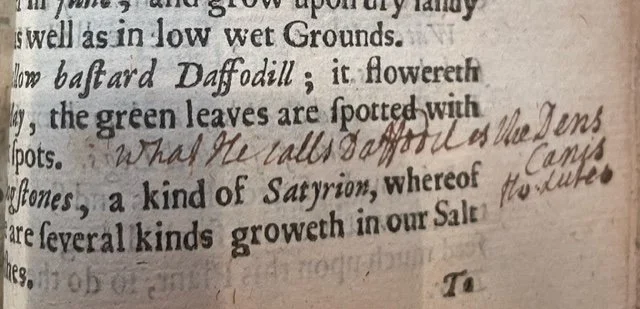 in June; and grow upon dry sandy
as well as in low wet Grounds.
llow baſtard Daffodill; it flowereth
ay, the green leaves are ſpotted with
ſpots. What He calls Daffodil is the Dens
Canis
gſtones, a kind of Satyrion, whereof
are ſeveral kinds groweth in our Salt
ſhes.
To